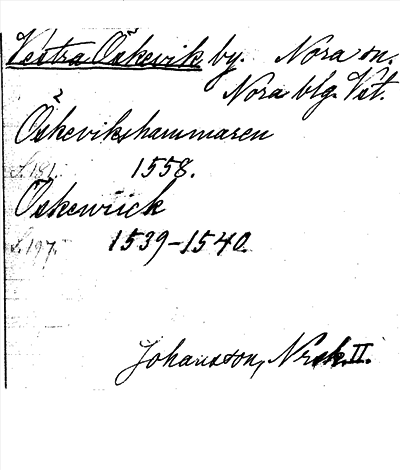 Vestra Öskevik, by. Nora sn.
Nora blg. Vst.
Öskevikshammaren
S. 181. 1558.
Öskewiick
S. 197. 1539-1540.
Johansson, Nrsk. II.